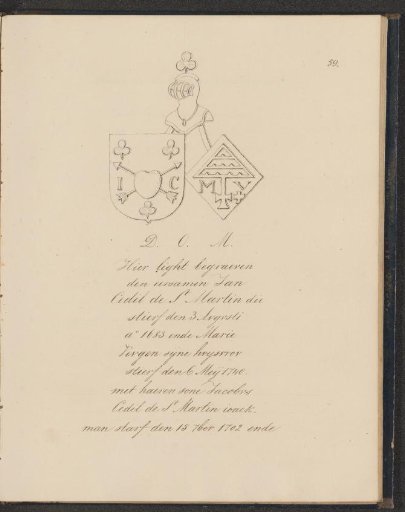 59.
I C
M Y
D. O. M.
Hier light begraeven
den eersamen Jan
Cedil de St Martin die
stierf den 3 Avgvsti
ao 1683 ende Marie
syne hvysvrov
stierf den 6 Meij 1740
met haeren sone Jacobvs
Cedil de St Martin
man starf den 15 7ber 1702 ende